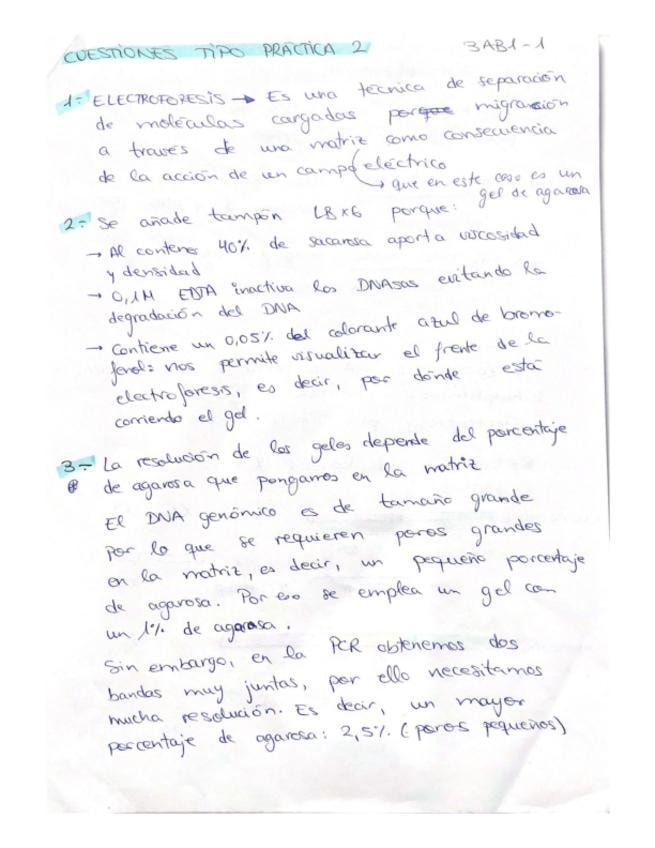 CUESTIONES TIPO PRÁCTICA 2
3AB1-1
1- ELECTROFORESIS → Es una técnica de separación
de moléculas cargadas por migración
a través de una matriz como consecuencia
de la acción de un campo eléctrico
→ que en este caso es un
gel de agarosa
2- Se añade tampón LBx6 porque:
→ Al contener 40% de sacarosa aporta viscosidad
y densidad
→ 0,1M EDTA inactiva las DNAsas evitando la
degradación del DNA
→ Contiene un 0,05% del colorante azul de bromo-
fenol: nos permite visualizar el frente de la
electroforesis, es decir, por dónde está
corriendo el gel.
3- La resolución de los geles depende del porcentaje
de agarosa que pongamos en la matriz
El DNA genómico es de tamaño grande
por lo que se requieren poros grandes
en la matriz, es decir, un pequeño porcentaje
de agarosa. Por eso se emplea un gel con
un 1% de agarosa.
Sin embargo, en la PCR obtenemos dos
bandas muy juntas, por ello necesitamos
mucha resolución. Es decir, un mayor
porcentaje de agarosa: 2,5% (poros pequeños)